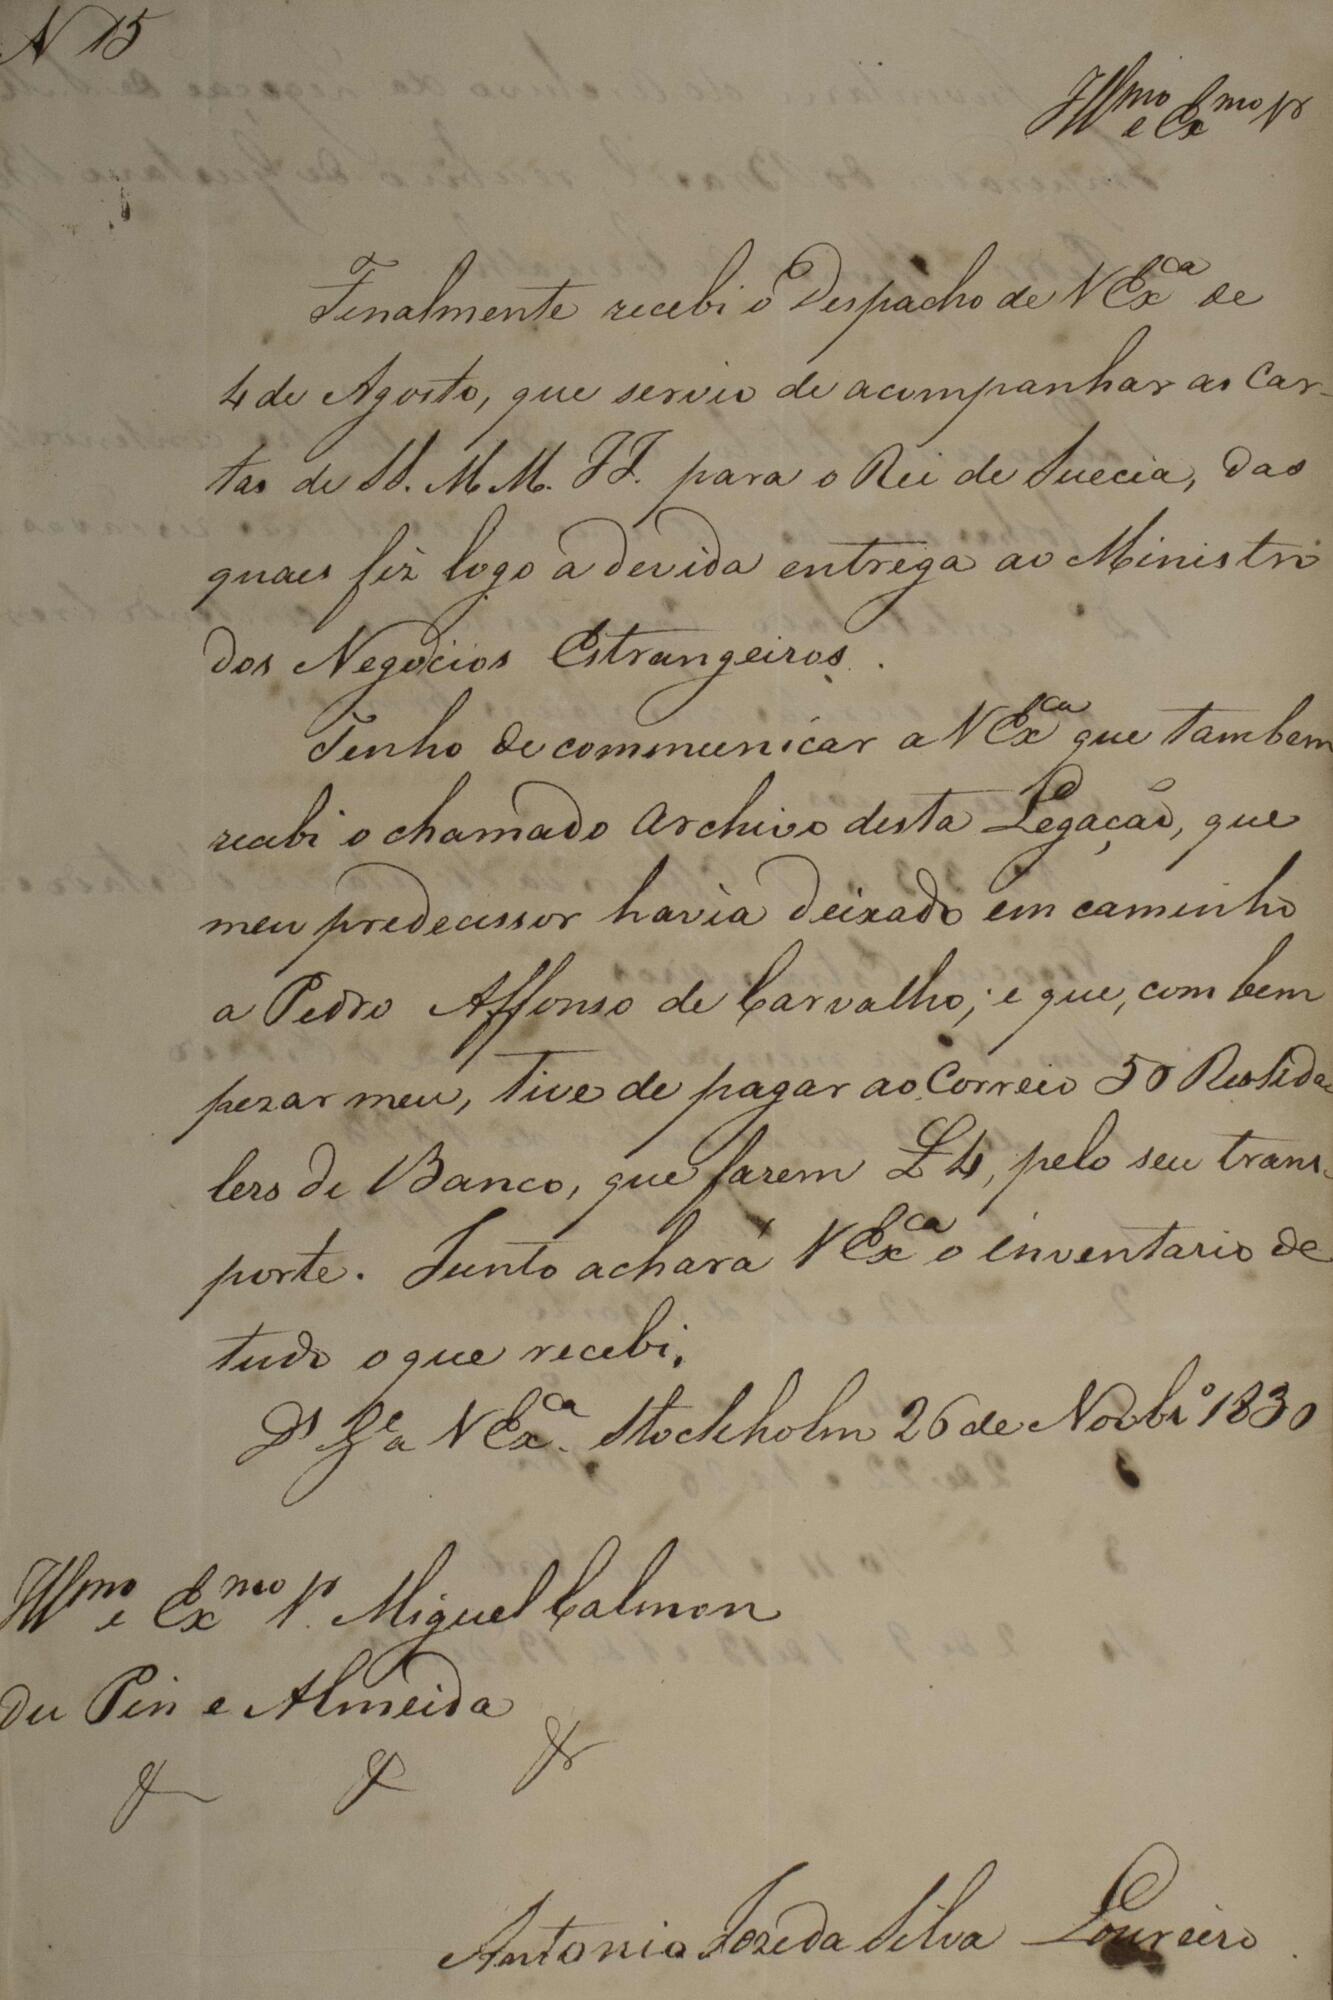 N 15
Illmo e Exmo Sr
Finalmente recebi o Despacho de V Exca de
4 de Agosto, que servio de acompanhar as Car-
tas de SS. M M. II. para o Rei de Suecia, das
quaes fiz logo a devida entrega ao Ministro
dos Negocios Estrangeiros.
Tenho de communicar a V Exca que tambem
recebi o chamado Archivo desta Legação, que
meu predecessor havia deixado em caminho
a Pedro Affonso de Carvalho; e que, com bem
pezar meu, tive de pagar ao Correio 50 Rixsda-
lers de Banco, que fazem £ 4, pelo seu trans-
porte. Junto achará V Exca o inventario de
tudo o que recebi.
Ds Ge a V Exca. Stockholm 26 de Novbro 1830
Illmo e Exmo Sr. Miguel Calmon
du Pin e Almeida
& & &
Antonio Joze da Silva Loureiro